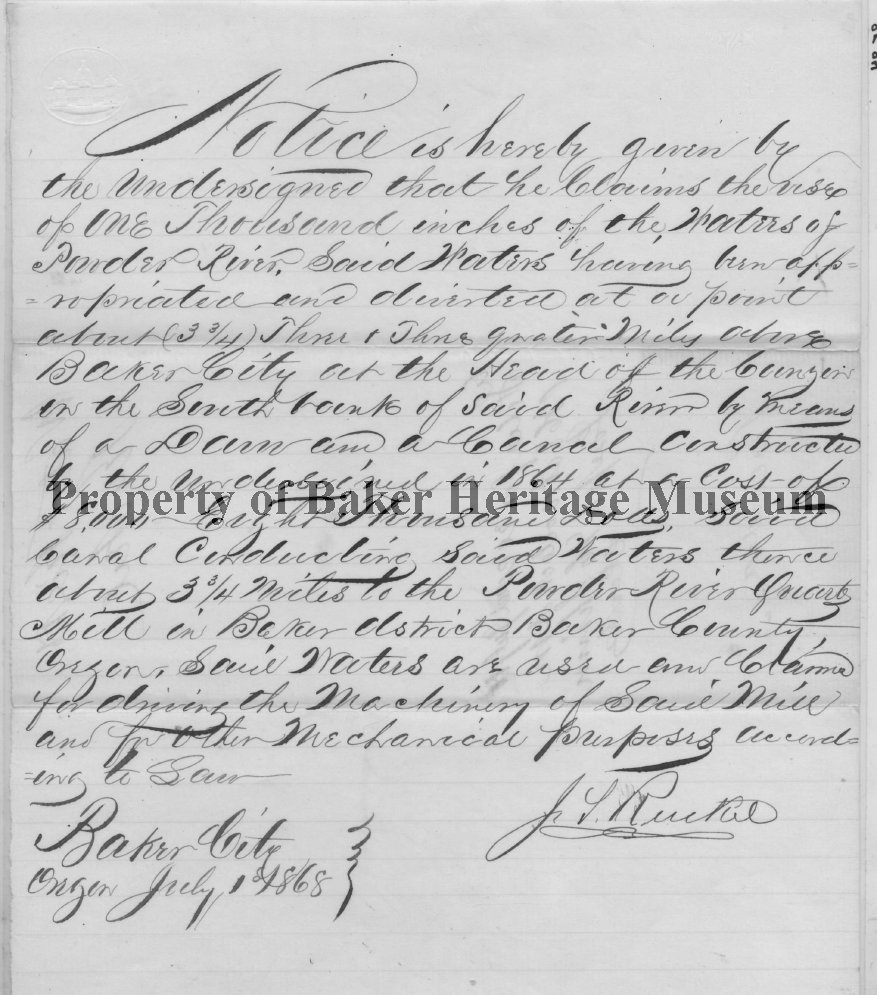 Notice is hereby given by
the Undersigned that he Claims the use
of One Thousand inches of the Waters of
Powder River, Said Waters having been app=
=ropriated and diverted at a point
about (3 3/4) Three & Three quarter Miles above
Baker City at the Head of the Canyon
on the South bank of said River by means
of a Dam and a Canal Constructed
by the undersigned in 1864 at a Cost of
Property of Baker Heritage Museum
$8,000 Eight Thousand Dolls, Said
Canal Conducting Said Waters thence
about 3 3/4 Miles to the Powder River Quartz
Mill in Baker district Baker County,
Oregon, Said Waters are used and Claimed
for driving the Machinery of Said Mill
and for other Mechanical purposes accord=
=ing to Law
J. S. Ruckel
Baker City
Oregon July 1st 1868